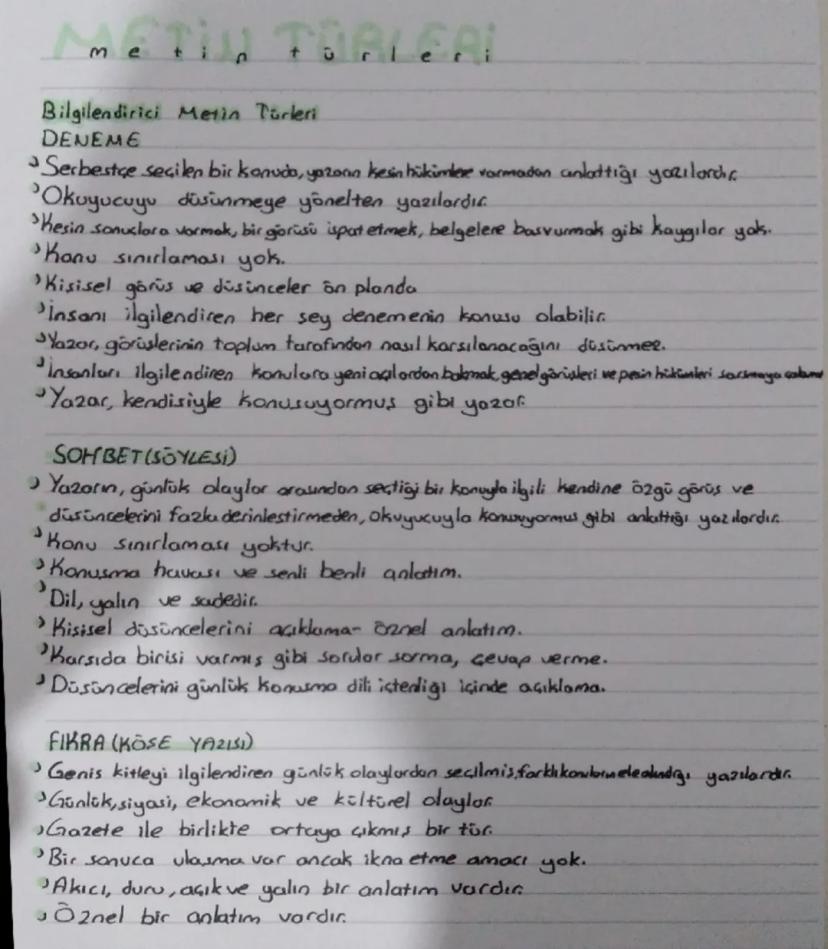 METİN TÜRLERİ
metin türleri
Bilgilendirici Metin Türleri
DENEME
Serbestçe seçilen bir konuda, yazarın kesin hükümlere varmadan anlattığı yazılardır.
Okuyucuyu düsünmeye yönelten yazılardır.
Kesin sonuçlara varmak, bir görüsü ispat etmek, belgelere basvurmak gibi kaygılar yok.
Konu sınırlaması yok.
Kisisel görüs ve düsünceler ön planda
İnsanı ilgilendiren her sey denemenin konusu olabilir.
Yazar, görüslerinin toplum tarafından nasıl karsılanacağını düsünmez.
İnsanları ilgilendiren konulara yeni açılardan bakmak, genel görüsleri ve pesin hükümleri sarsmaya
Yazar, kendisiyle konusuyormus gibi yazar.
SOHBET (SÖYLESİ)
Yazarın, günlük olaylar arasından seçtiği bir konuyla ilgili kendine özgü görüs ve
düsüncelerini fazla derinlestirmeden, okuyucuyla konuuyormus gibi anlattığı yazılardır.
Konu sınırlaması yoktur.
Konusma havası ve senli benli anlatım.
Dil, yalın ve sadedir.
Kisisel düsüncelerini açıklama- öznel anlatım.
Karsıda birisi varmıs gibi sorular sorma, cevap verme.
Düsüncelerini günlük konusma dili içtenliği içinde açıklama.
FIKRA (KÖSE YAZISI)
Genis kitleyi ilgilendiren günlük olaylardan seçilmis, farklı konuların ele alındığı yazılardır.
Günlük, siyasi, ekonomik ve kültürel olaylar.
Gazete ile birlikte ortaya çıkmıs bir tür.
Bir sonuca ulasma var ancak ikna etme amacı yok.
Akıcı, duru, açık ve yalın bir anlatım vardır.
Öznel bir anlatım vardır.